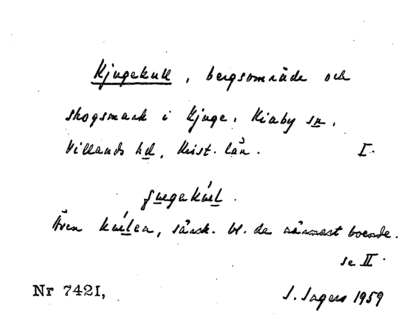 Kjugekull, bergsområde och
skogsmark i Kjuge, Kiaby sn,
Villands hd, Krist. län. I.
Även kullen, särsk. bl. de närmast boende.
se II.
Nr 7421, S. Ingers 1959